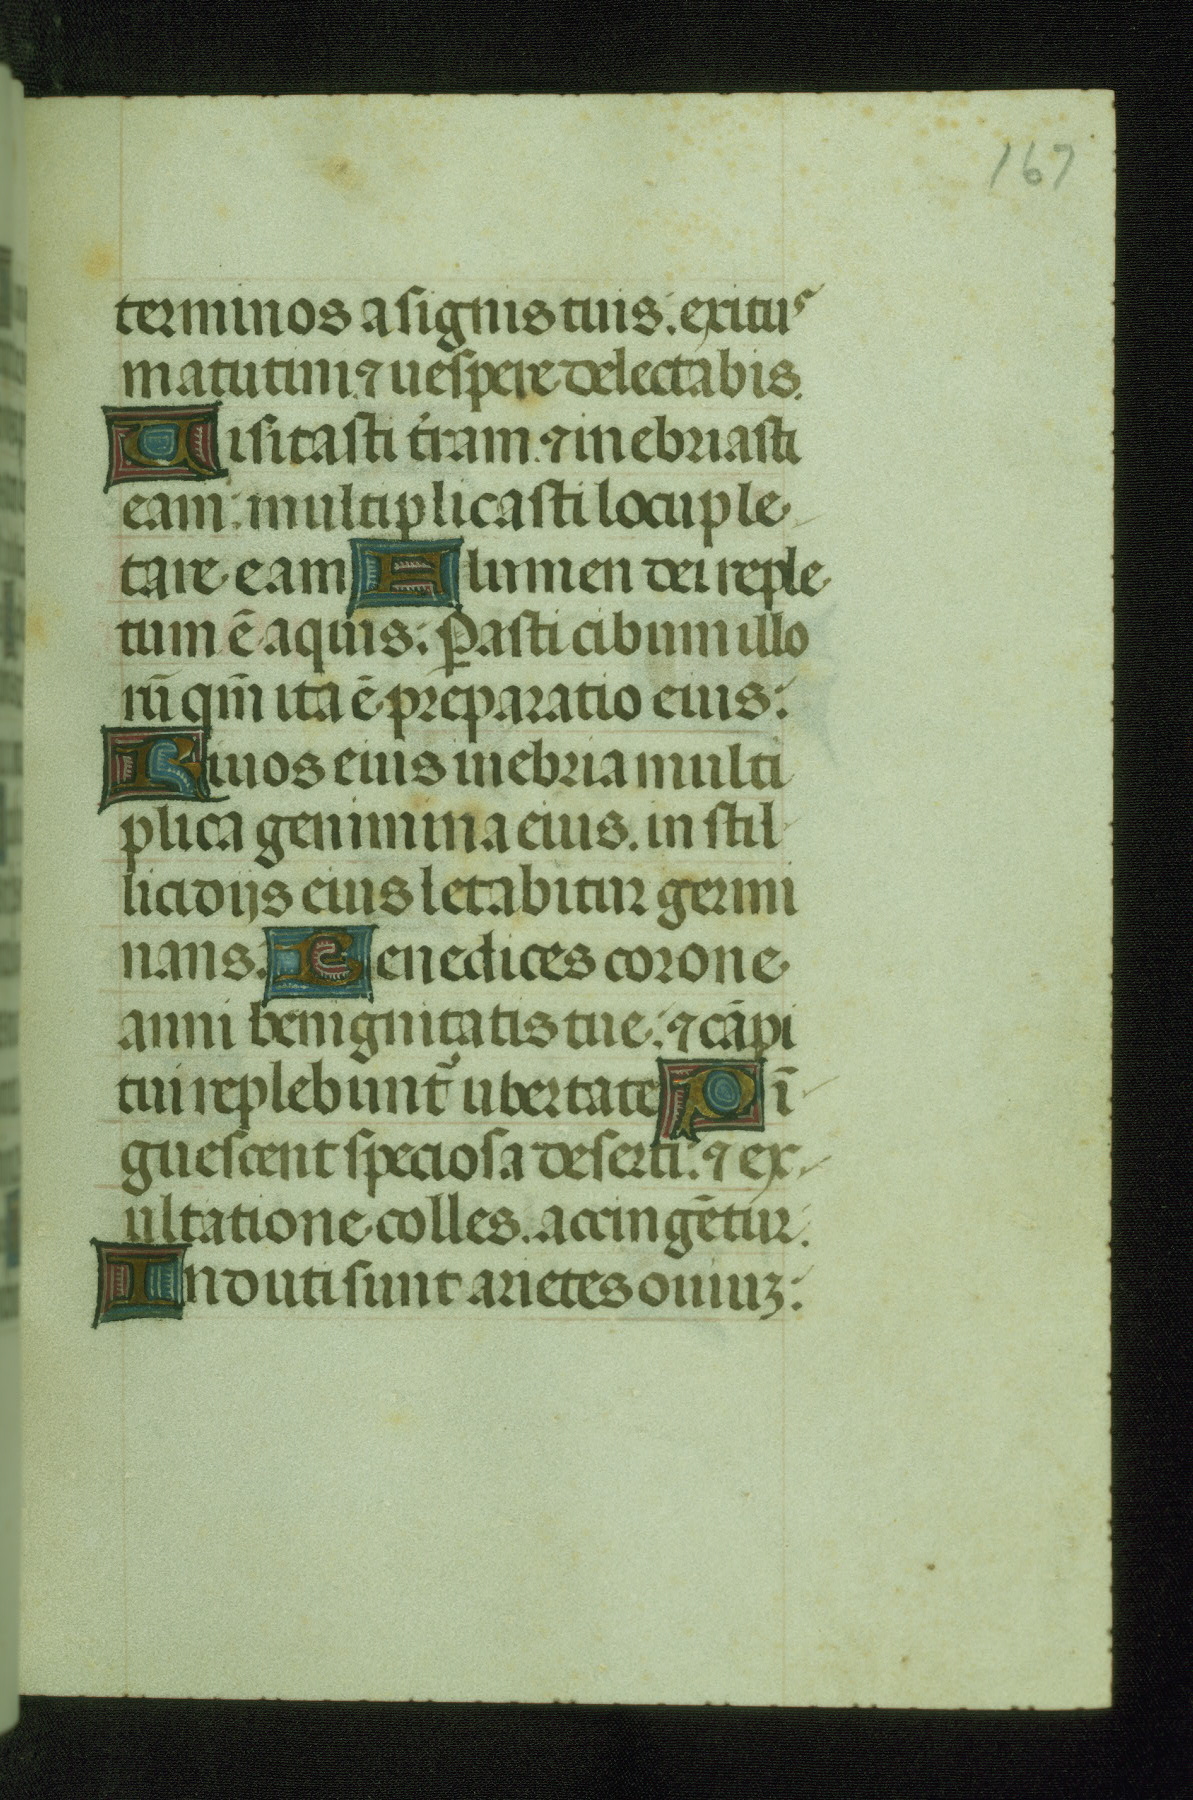 167
terminos a signis tuis: exitus
matutini ⁊ uespere delectabis.
Uisitasti t̉ram: ⁊ inebriasti
eam: multiplicasti locuple
tare eam Flumen dei reple
tum ē aquis: Parasti cibum illo
rū qm̄ ita ē preparatio eius:
Riuos eius inebria multi
plica genimina eius. in stil
licidijs eius letabitur germi
nans. Benedices corone
anni benignitatis tue: ⁊ cāpi
tui replebunt̉ ubertate Pī
guescent speciosa deserti: ⁊ ex
ultatione colles. accingētur.
Induti sunt arietes ouiuꝫ: